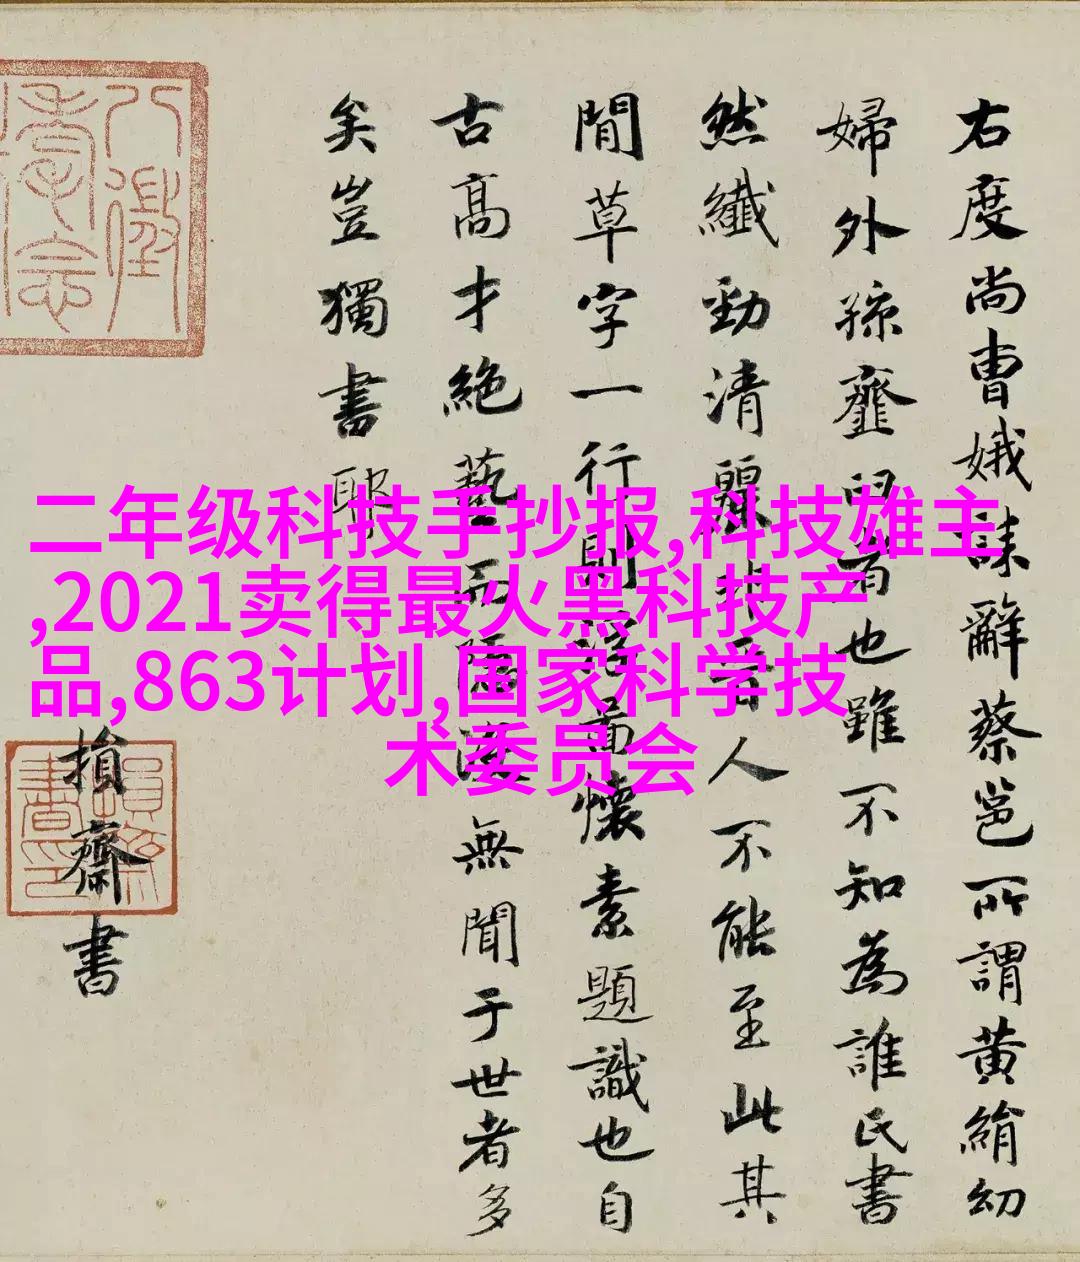 右度尚曹娥誄辭蔡邕所謂黄絹幼
婦外孫齏臼者也雖不知為誰氏書
然纖勁清麗非晉人不能至此其
閒草字一行則浮屠懷素題識也自
古高才絶藝而隱没無聞于世者多
矣豈獨書耶
損齋書
二年级科技手抄报,科技雄主
,2021卖得最火黑科技产
品,863计划,国家科学技
术委员会
損齋書印